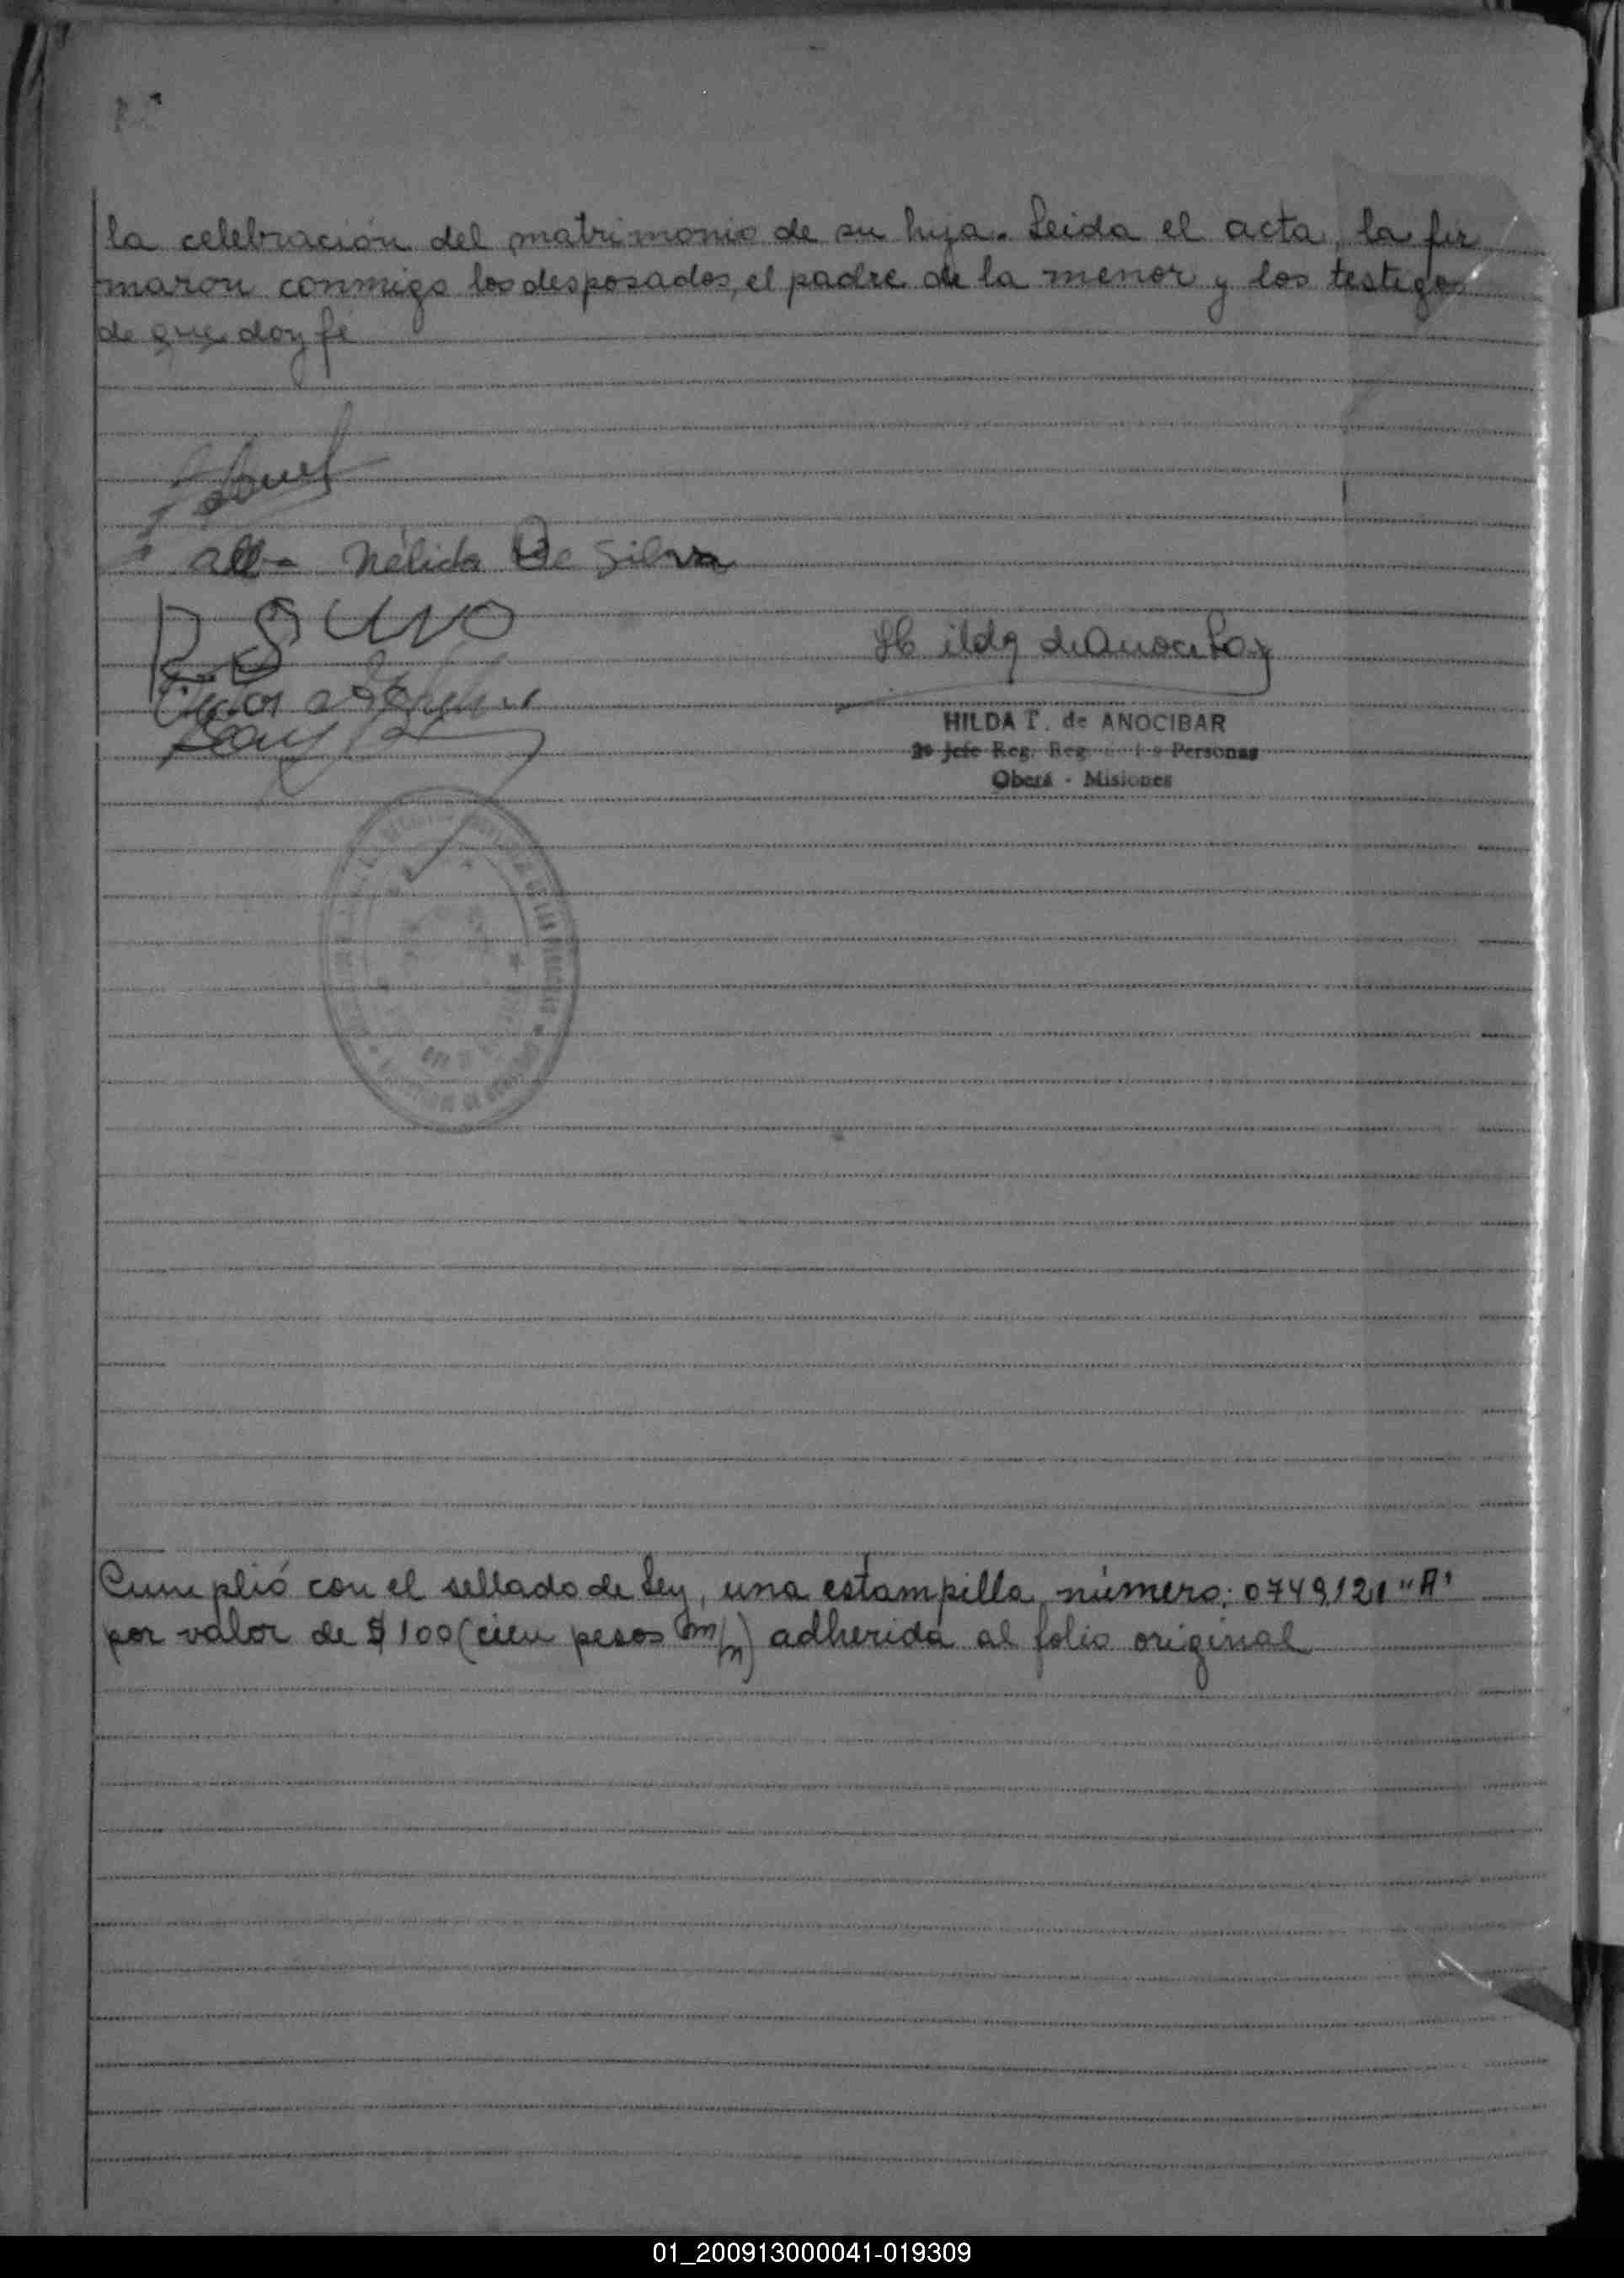 la celebración del matrimonio de su hija. Leida el acta, la fir
maron conmigo los desposados, el padre de la menor y los testigos
de que doy fé
Alba Nélida De Silva
Hilda de Anocibar
HILDA T. de ANOCIBAR
2º Jefe Reg. Reg. Personas
Oberá - Misiones
Cumplió con el sellado de Ley, una estampilla número: 0749121 "A"
por valor de $ 100 (cien pesos m/n) adherida al folio original
01_200913000041-019309